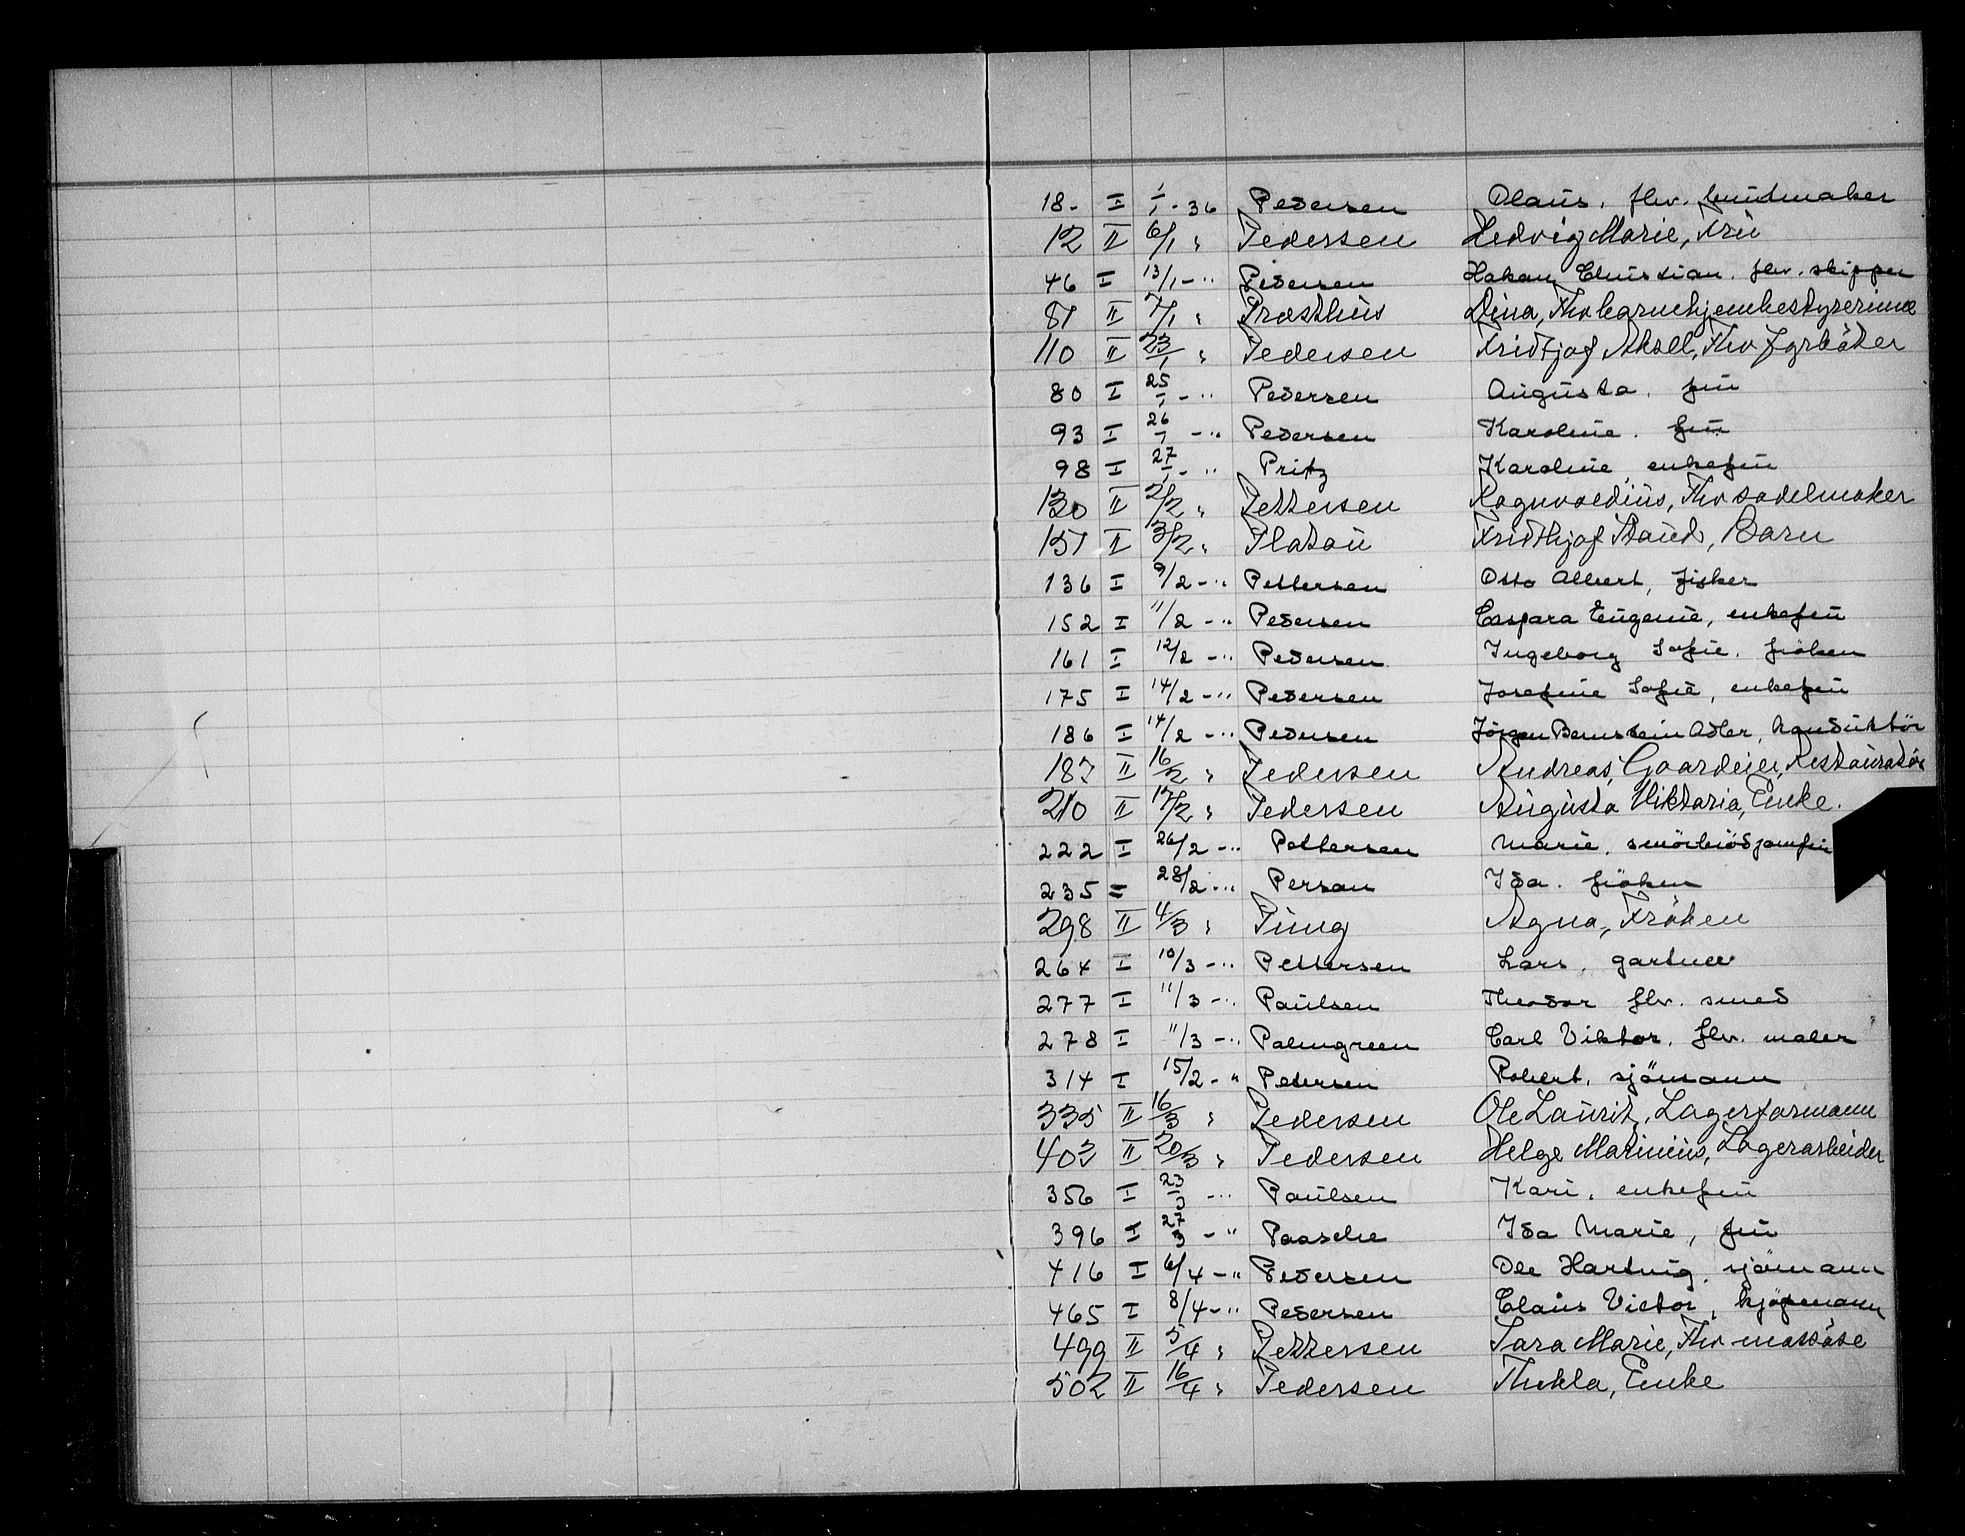 18- I 1/1 - 36 Pedersen Olaus. fhv. buntmaker
12 II 6/1 " Pedersen Hedvig Marie, Fru
46 I 13/1 - " Pedersen Hakan Christian. fhv. skipper
87 II 7/1 " Præsthus Dina, Fhv barnehjembestyrerinne
110 II 23/1 " Pedersen Fridtjof Aksell, Fhv fyrböter
80 I 25/1 - " Pedersen Augusta. fru
93 I 26/1 - " Pedersen Karoline. fru
98 I 27/1 - " Pritz Karoline enkefru
130 II 2/2 " Pettersen Ragnvaldius, Fhv sadelmaker
151 II 3/2 " Platou Fridthjof Staud, Barn
136 I 9/2 - " Pettersen Otto Albert, fisker
152 I 11/2 - " Pedersen Caspara Eugenie, enkefru
161 I 12/2 - " Pedersen Ingeborg Sofie. fröken
175 I 14/2 - " Pedersen Josefine Sofie, enkefru
186 I 14/2 - " Pedersen Jörgen Bernstein Adler, konduktör
187 II 16/2 " Pedersen Andreas, Gaardeier, Restauratör
210 II 17/2 " Pedersen Augusta Viktoria, Enke.
222 I 26/2 - " Pettersen Marie, smörbrödjomfru
235 = 28/2 - " Persson Ida. fröken
298 II 4/3 " Pung Agna, Fröken
264 I 10/3 - " Pettersen Lars, gartner
277 I 11/3 - " Paulsen Theodor fhv. smed
278 I 11/3 - " Palmgreen Carl Viktor. fhv. maler
314 I 15/2 - " Petersen Robert, sjömann
335 II 16/3 " Pedersen Ole Laurit, Lagerformann
403 II 20/3 " Pedersen Helge Marinius, Lagerarbeider
356 I 23/3 - " Paulsen Kari. enkefru
396 I 27/3 - " Paasche Ida Marie, fru
416 I 6/4 - " Pedersen Ole Hartvig. sjömann
465 I 8/4 - " Pedersen Claus Victor, kjöpmann
499 II 5/4 " Pettersen Sara Marie, Fhv massöse
502 II 16/4 " Pedersen Thekla, Enke